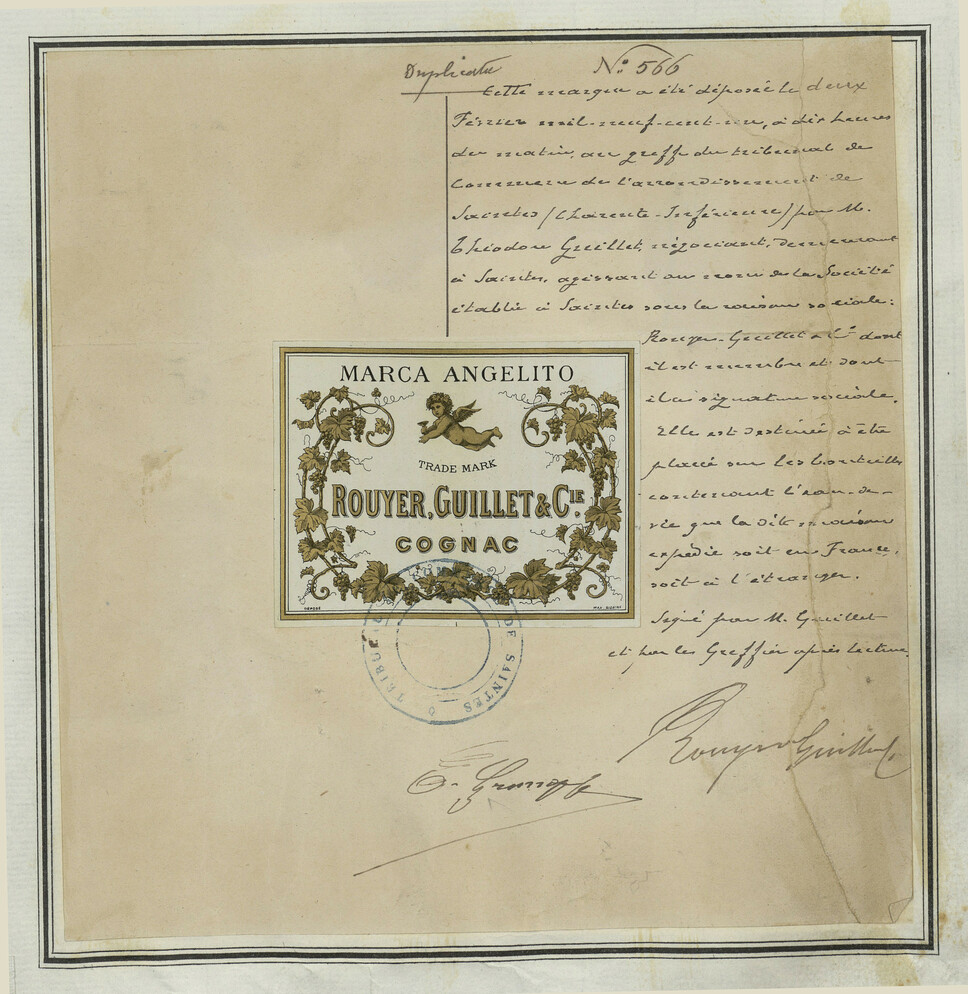 Duplicata
N.º 566
Cette marque a été déposée le deux
Février mil-neuf-cent-un, à dix heures
du matin, au greffe du tribunal de
Commerce de l'arrondissement de
Saintes (Charente-Inférieure) par M.
Théodore Guillet, négociant, demeurant
à Saintes, agissant au nom de la Société
établie à Saintes sous la raison sociale:
Rouyer-Guillet & Cie dont
il est membre et dont
il a signature sociale.
Elle est destinée à être
placée sur les bouteilles
contenant l'eau-de-
vie que la dite maison
expédie soit en France,
soit à l'étranger.
Signé par M. Guillet
et par les Greffier après lecture.
MARCA ANGELITO
TRADE MARK
ROUYER, GUILLET & CIE.
COGNAC
TRIBUNAL DE COMMERCE DE SAINTES
Rouyer Guillet